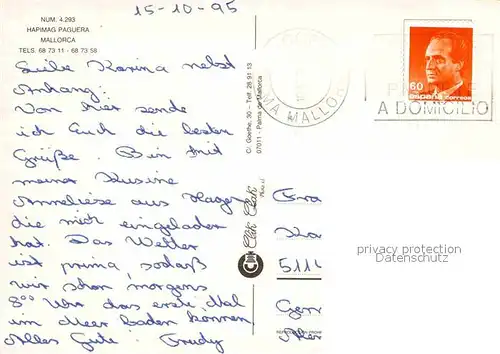 15-10-95
NUM. 4.293
HAPIMAG PAGUERA
MALLORCA
TELS. 68 73 11 - 68 73 58
Liebe Karina nebst
Anhang:
Von hier sende
ich Euch die besten
Grüße. Bin mit
meiner Kusine
Anneliese aus Hagen
die mich eingeladen
hat. Das Wetter
ist prima, sodaß
wir schon morgens
8⁰⁰ Uhr das erste Mal
im Meer baden können
Alles Gute. Trudy
C/. Goethe, 30 - Telf. 28 91 13
07011 - Palma de Mallorca
Clik Clak
MA MALLOR
A DOMICILIO
60
España correos
Fra
Ka
5114
Ger
privacy protection
Default text